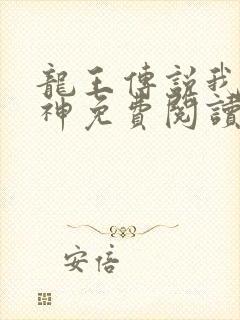 龍王傳説我
神免費閱讀
安倍